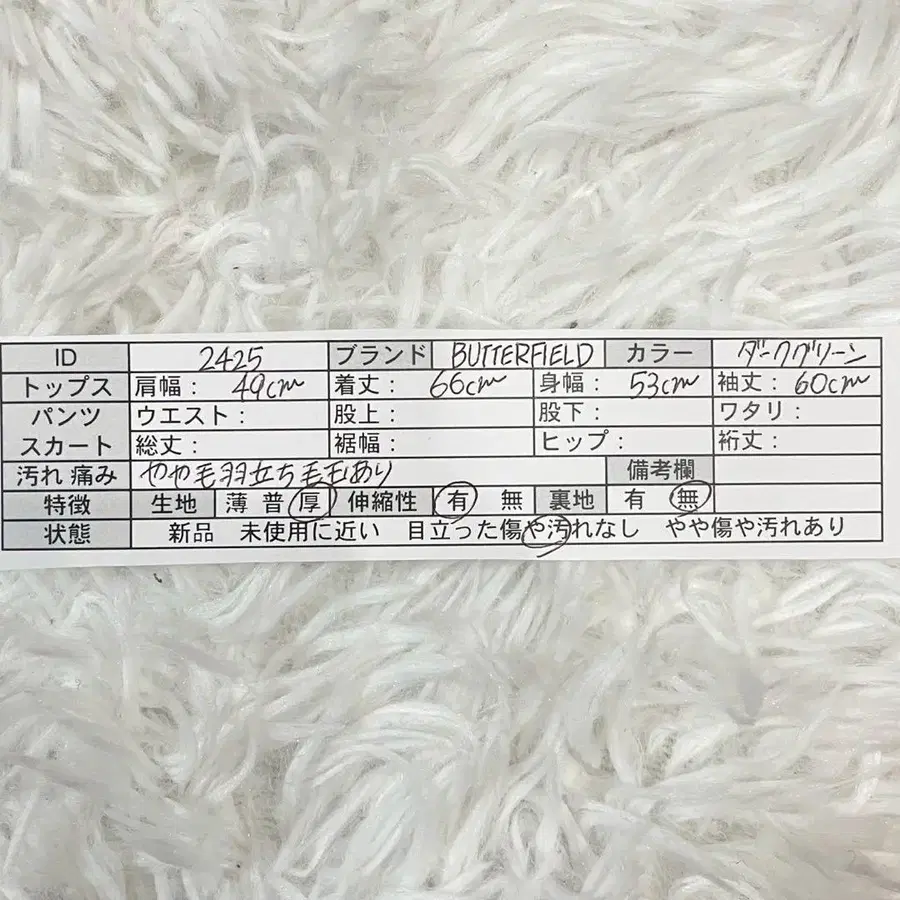 ID 2425 ブランド BUTTERFIELD カラー ダークグリーン
トップス 肩幅： 49cm 着丈： 66cm 身幅： 53cm 袖丈： 60cm
パンツ ウエスト： 股上： 股下： ワタリ：
スカート 総丈： 裾幅： ヒップ： 裄丈：
汚れ 痛み やや毛羽立ち毛玉あり 備考欄
特徴 生地 薄 普 厚 伸縮性 有 無 裏地 有 無
状態 新品 未使用に近い 目立った傷や汚れなし やや傷や汚れあり